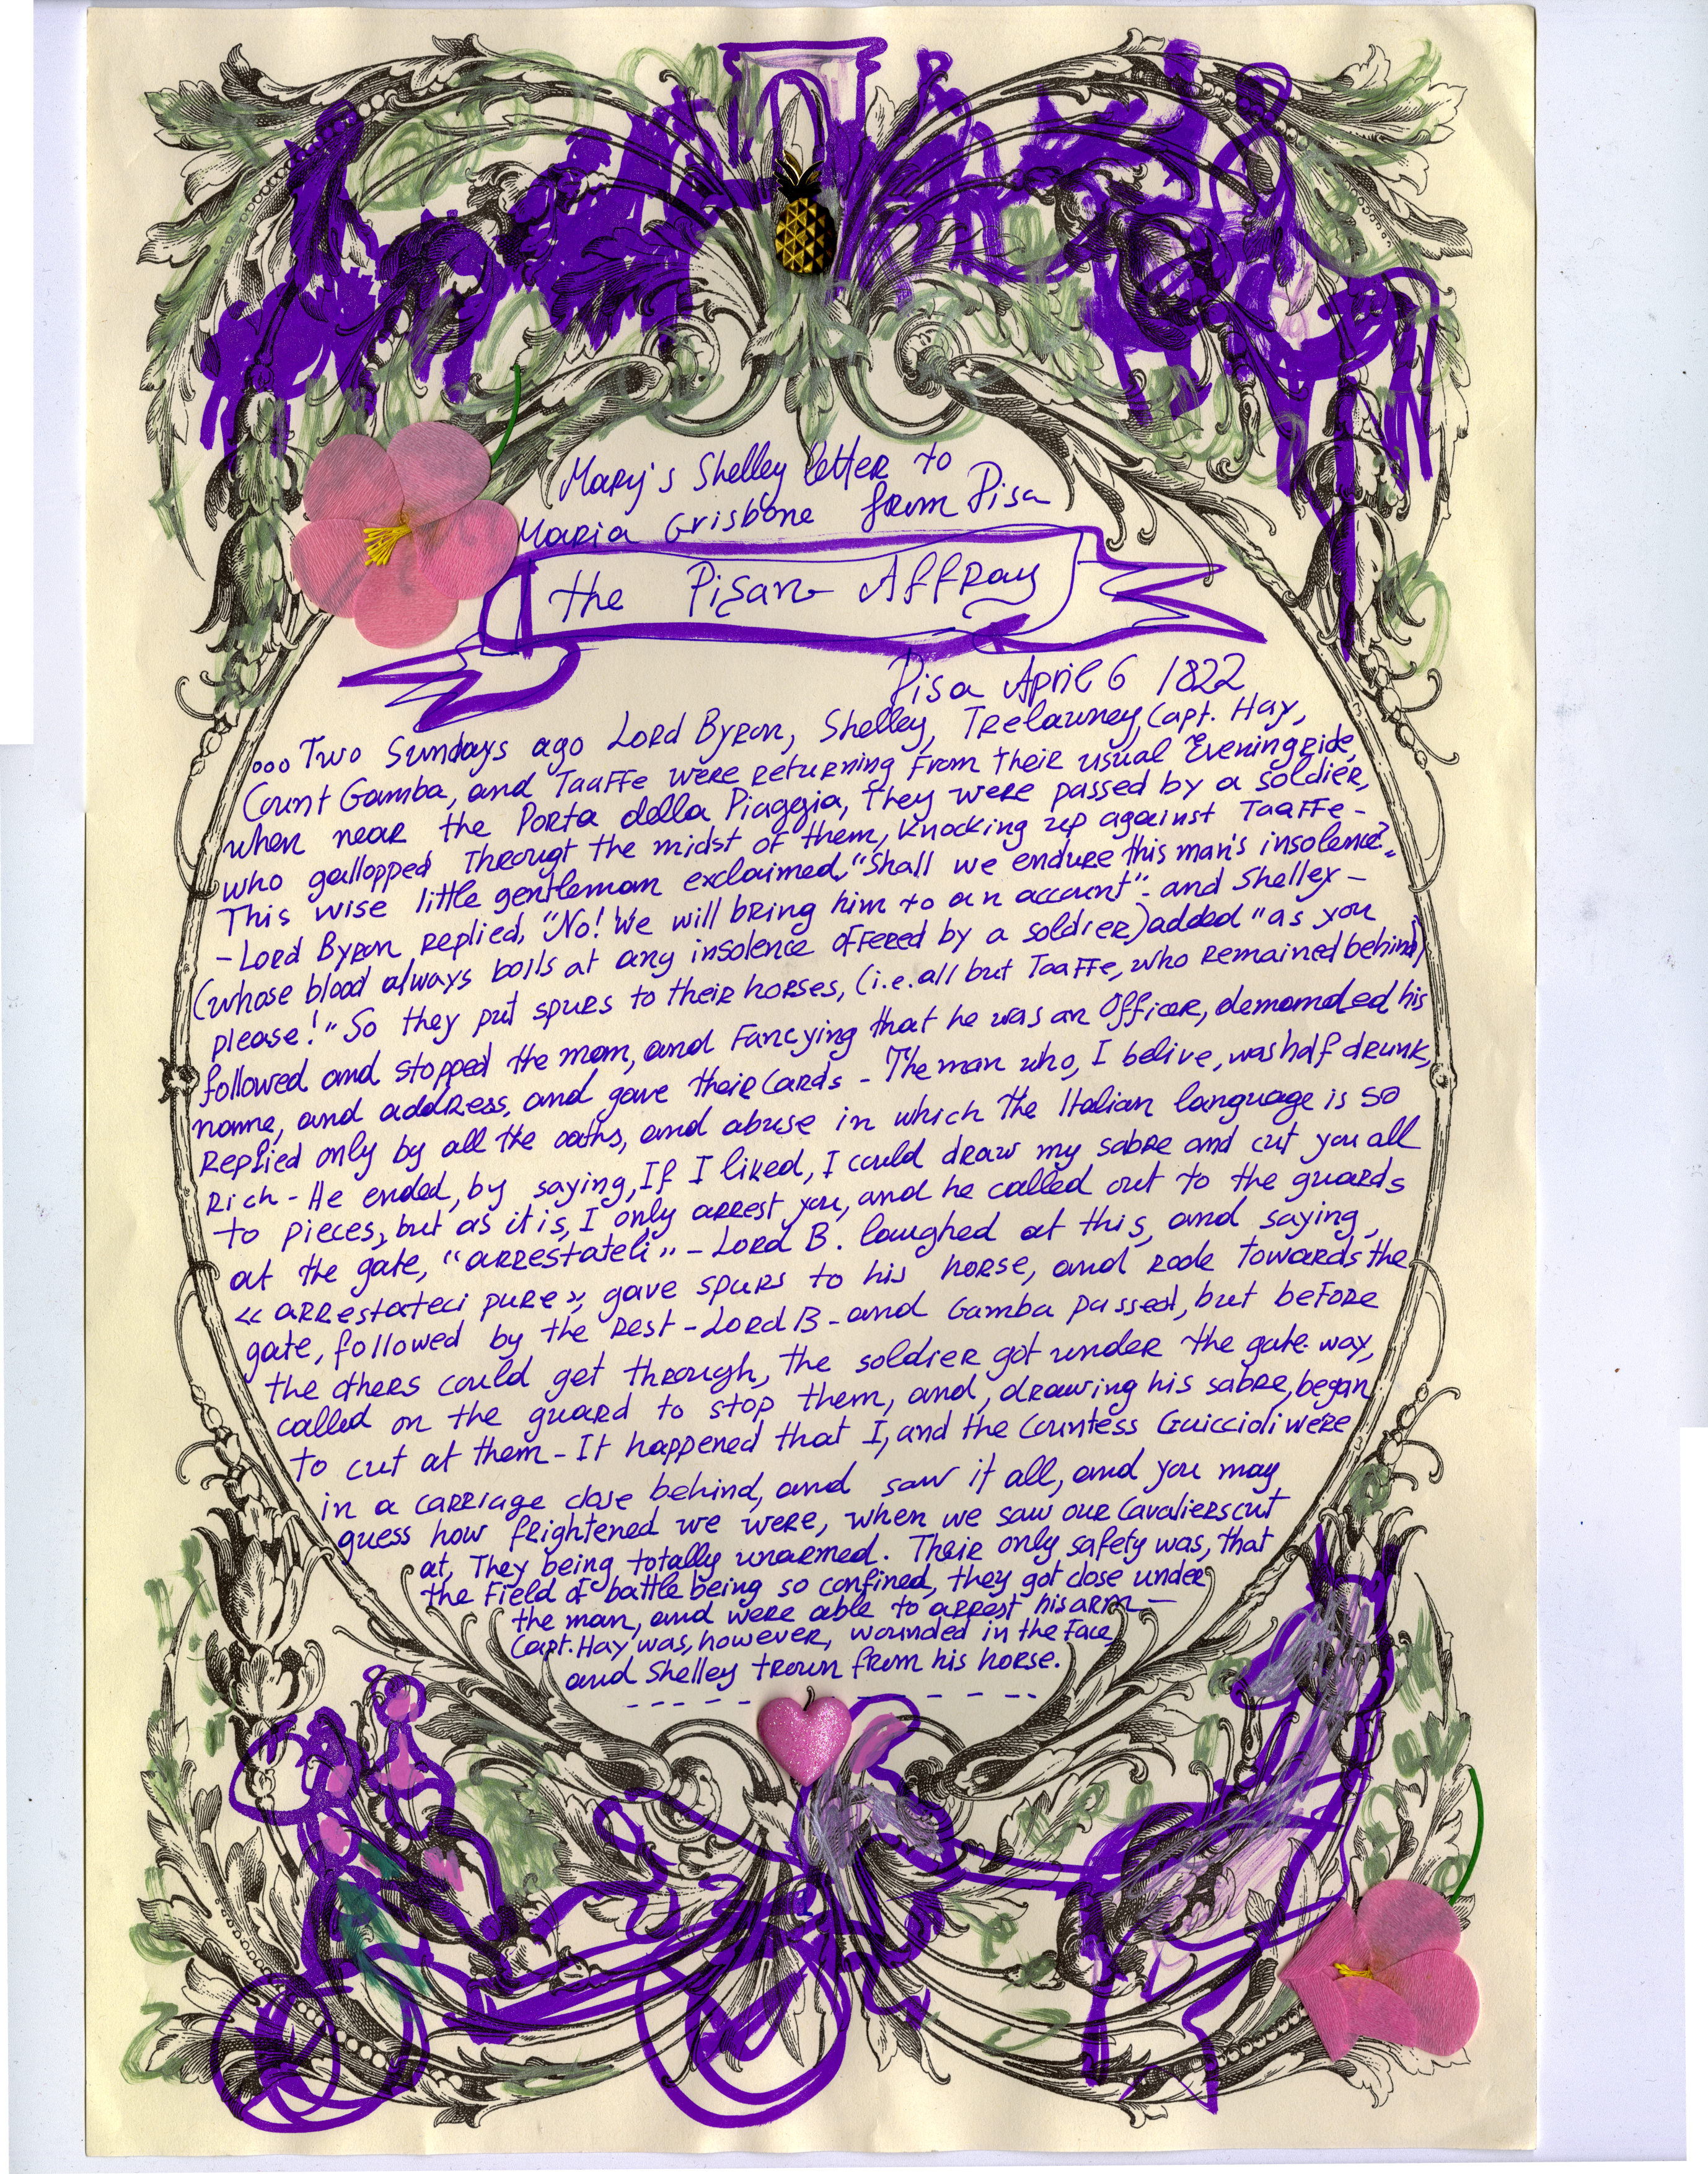 Mary's Shelley letter to
Maria Grisbone from Pisa
the Pisan Affray
Pisa April 6 1822
...Two Sundays ago Lord Byron, Shelley, Trelawney, Capt. Hay,
Count Gamba, and Taaffe were returning from their usual Evening ride,
when near the Porta della Piaggia, they were passed by a soldier,
who gallopped Througt the midst of them, knocking up against Taaffe-
This wise little gentleman exclaimed, "Shall we endure this man's insolence?"
- Lord Byron replied, "No! We will bring him to an account" - and Shelley -
(whose blood always boils at any insolence offered by a soldier) added "as you
please!" So they put spurs to their horses, (i.e. all but Taaffe, who remained behind)
followed and stopped the man, and Fancying that he was an Officer, demanded his
name, and address, and gave their cards - The man who, I belive, was half drunk,
Replied only by all the oaths, and abuse in which the Italian language is so
Rich - He ended, by saying, If I liked, I could draw my sabre and cut you all
to pieces, but as it is, I only arrest you, and he called out to the guards
at the gate, "arrestateli" - Lord B. laughed at this, and saying,
« arrestateci pure », gave spurs to his horse, and rode towards the
gate, followed by the rest - Lord B - and Gamba passed, but before
the others could get through, the soldier got under the gate-way,
called on the guard to stop them, and, drawing his sabre, began
to cut at them - It happened that I, and the Countess Guiccioli were
in a carriage close behind, and saw it all, and you may
guess how frightened we were, when we saw our Cavaliers cut
at, They being totally unarmed. Their only safety was, that
the Field of battle being so confined, they got close under
the man, and were able to arrest his arm -
Capt. Hay was, however, wounded in the Face,
and Shelley trown from his horse.